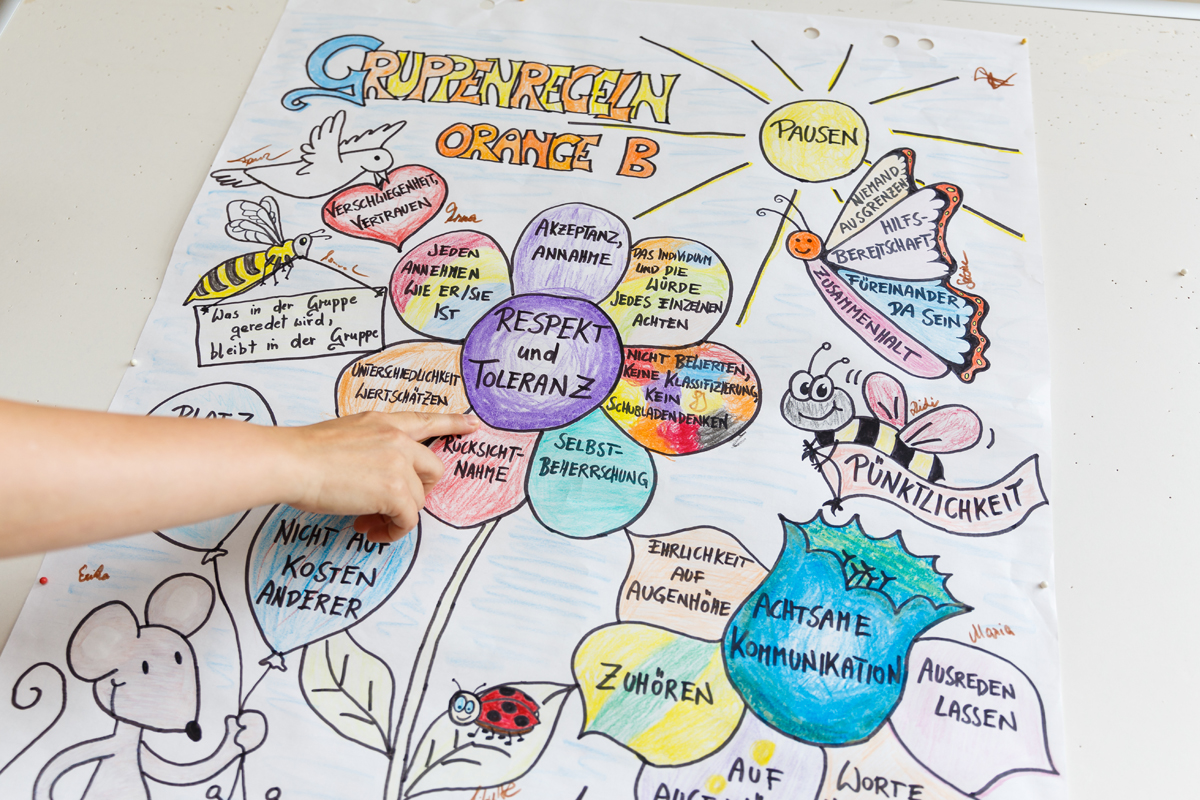 GRUPPENREGELN
ORANGE B
PAUSEN
VERSCHWIEGENHEIT,
VERTRAUEN
*Was in der Gruppe
geredet wird,
bleibt in der Gruppe
JEDEN
ANNEHMEN
WIE ER/SIE
IST
AKZEPTANZ,
ANNAHME
DAS INDIVIDUUM
UND DIE
WÜRDE
JEDES EINZELNEN
ACHTEN
NIEMAND
AUSGRENZEN
HILFS-
BEREITSCHAFT
FÜREINANDER
DA SEIN
ZUSAMMENHALT
RESPEKT
und
TOLERANZ
UNTERSCHIEDLICHKEIT
WERTSCHÄTZEN
NICHT BEWERTEN,
KEINE KLASSIFIZIERUNG,
KEIN
SCHUBLADENDENKEN
RÜCKSICHT-
NAHME
SELBST-
BEHERRSCHUNG
Didi
PÜNKTLICHKEIT
PLATZ
NICHT AUF
KOSTEN
ANDERER
EHRLICHKEIT
AUF
AUGENHÖHE
ACHTSAME
KOMMUNIKATION
Maria
ZUHÖREN
AUSREDEN
LASSEN
AUF
WORTE